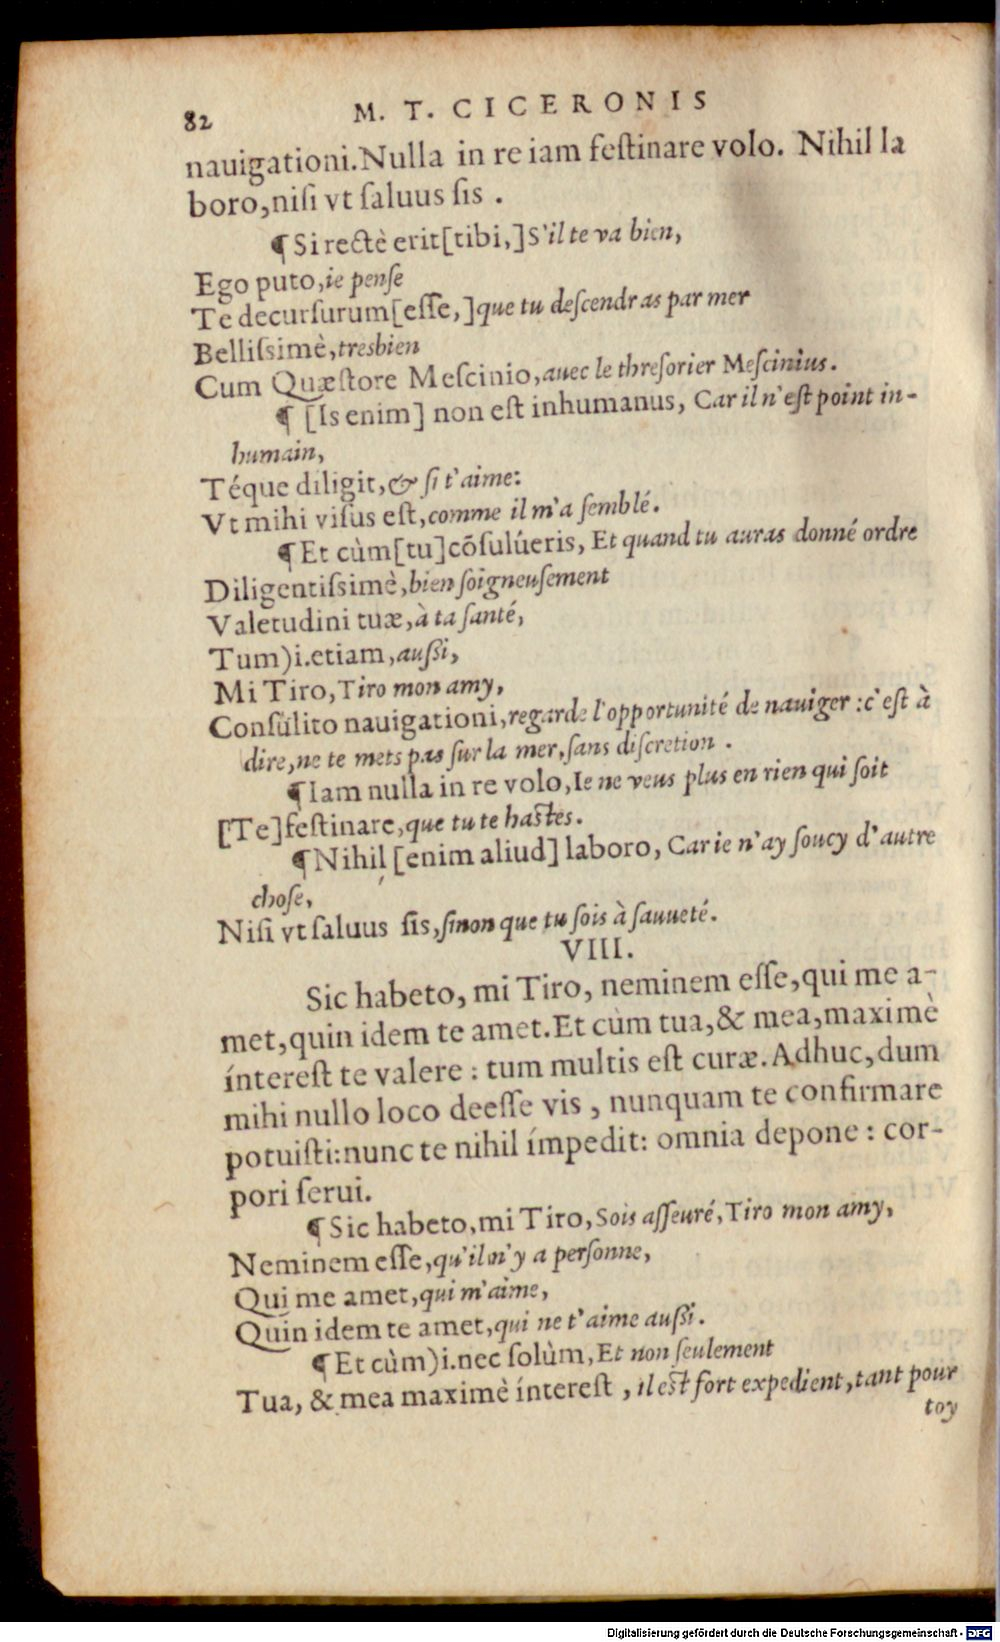 82 M. T. CICERONIS
nauigationi. Nulla in re iam feſtinare volo. Nihil la
boro, niſi vt ſaluus ſis .
¶ Si rectè erit [tibi,] S'il te va bien,
Ego puto, ie penſe
Te decurſurum [eſſe,] que tu deſcendras par mer
Belliſsimè, tresbien
Cum Quæſtore Meſcinio, auec le threſorier Meſcinius.
¶ [Is enim] non eſt inhumanus, Car il n'eſt point in-
humain,
Téque diligit, & ſi t'aime:
Vt mihi viſus eſt, comme il m'a ſemblé.
¶ Et cùm [tu] cõſulúeris, Et quand tu auras donné ordre
Diligentiſsimè, bien ſoigneuſement
Valetudini tuæ, à ta ſanté,
Tum) i. etiam, auſſi,
Mi Tiro, Tiro mon amy,
Conſúlito nauigationi, regarde l'opportunité de nauiger : c'eſt à
dire, ne te mets pas ſur la mer, ſans diſcretion .
¶ Iam nulla in re volo, Ie ne veus plus en rien qui ſoit
[Te] feſtinare, que tu te haſtes.
¶ Nihil [enim aliud] laboro, Car ie n'ay ſoucy d'autre
choſe,
Niſi vt ſaluus ſis, ſinon que tu ſois à ſauueté.
VIII.
Sic habeto, mi Tiro, neminem eſſe, qui me a-
met, quin idem te amet. Et cùm tua, & mea, maximè
íntereſt te valere : tum multis eſt curæ. Adhuc, dum
mihi nullo loco deeſſe vis , nunquam te confirmare
potuiſti: nunc te nihil ímpedit: omnia depone : cor-
pori ſerui.
¶ Sic habeto, mi Tiro, Sois aſſeuré, Tiro mon amy,
Neminem eſſe, qu'il n'y a perſonne,
Qui me amet, qui m'aime,
Quin idem te amet, qui ne t'aime auſſi.
¶ Et cùm) i. nec ſolùm, Et non ſeulement
Tua, & mea maximè íntereſt , il eſt fort expedient, tant pour
toy
Digitalisierung gefördert durch die Deutsche Forschungsgemeinschaft - DFG